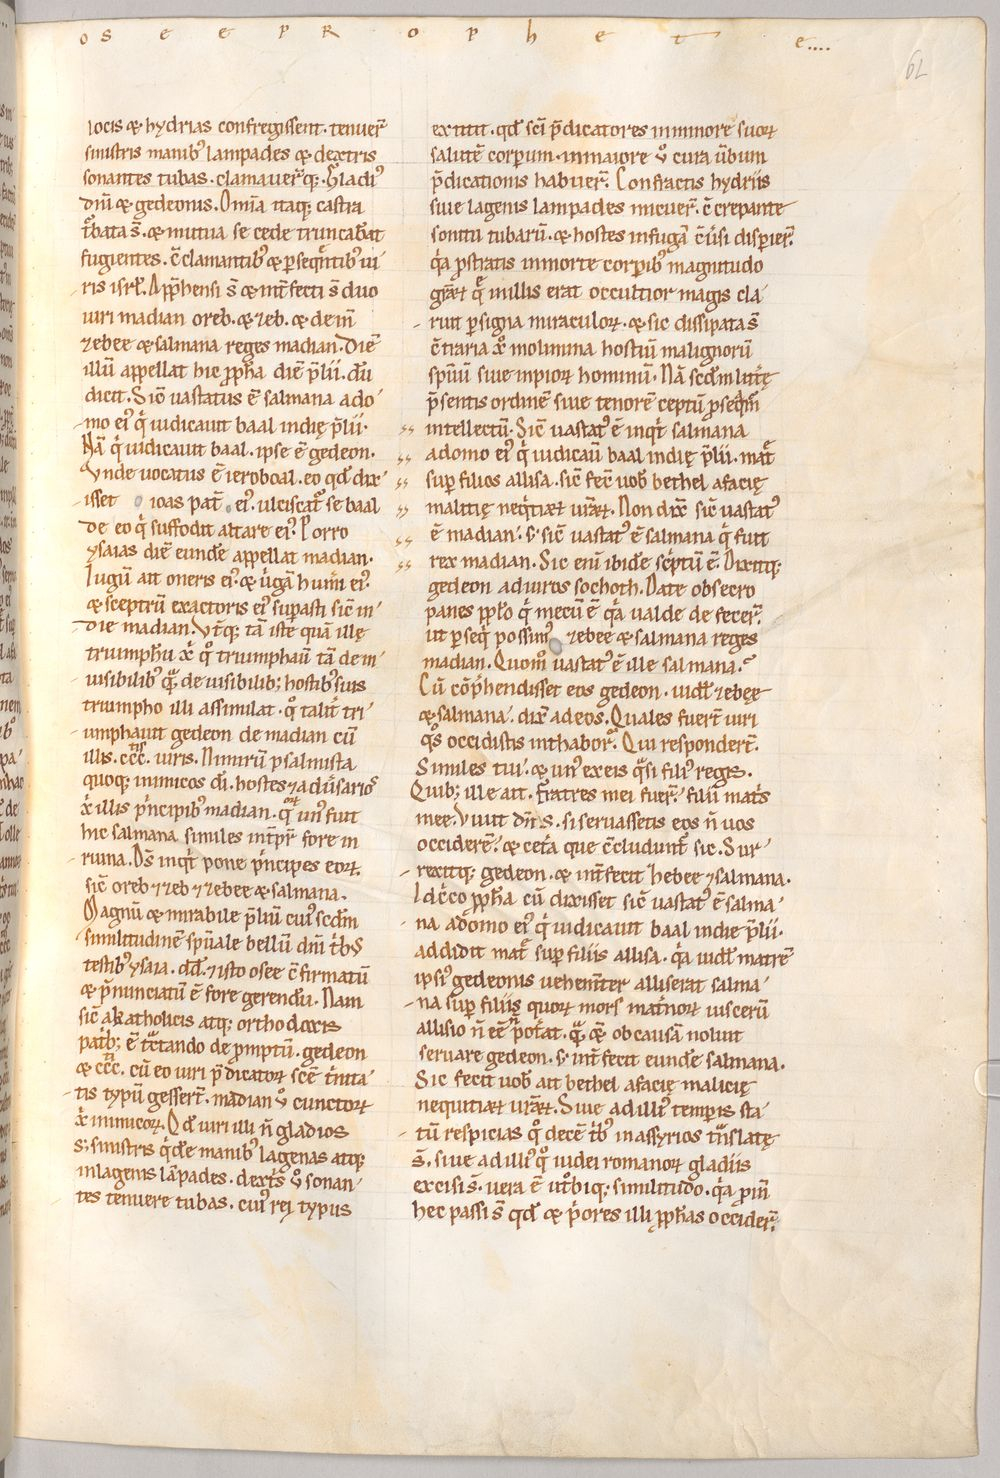 OSEE PROPHETE....
62
locis & hydrias confregissent. tenuer̄
sinistris manib; lampades & dextris
sonantes tubas. clamauer̄q; Gladi᾽
dn̄i & gedeonis. Om̄ia itaq; castra
t̄bata s̄. & mutua se cede truncab̄at
fugientes. c̄clamantib᾽ & p̱seq̄ntib᾽ ui
ris isrl̄. App̄hensi s̄ & int̄fecti s̄ duo
uiri madian oreb. & zeb. & dein̄
zebee & salmana reges madian. Diē
illū appellat hic ꝓph̄a diē p̄lii. dū
dicit. Sic̄ uastatus ē salmana a do
mo ei᾽ qͥ iudicauit baal in die p̄lii.
Nā qͥ iudicauit baal. ipse ē gedeon.
Vnde uocatus ē ieroboal. eo qd̄ dix
isset ioas pat̄ ei᾽. ulciscat᾽ se baal
de eo qͥ suffodit altare ei᾽. Porro
ysaias diē eunde appellat madian.
Iugū ait oneris ei᾽. & ũgā hum̄i ei᾽.
& sceptrū exactoris ei᾽ sup̱asti sic̄ in
die madian. Vt̄q; tā iste quā illę
triumphū xp̄i quo triumphauit tā de in
uisibilib᾽ quā de uisibilib; hostib᾽ suis
triumpho illi assimilat. q̊ talit̄ tri
umphauit gedeon de madian cū
illis. ccc. uiris. Nimirū psalmista
quoq; inimicos dī. hostes & adũsarios
xp̄i illis pͥncipib᾽ madian. quoꝝ un᾽ fuit
hic salmana similes int̄pr̄ fore in
ruina. Ds̄ inqͥt pone pͥncipes eoꝝ.
sic̄ oreb & zeb & zebee & salmana.
Magnū & mirabile p̄liū cui᾽ scd̄m
similitudinē spūale bellū dn̄i t̄b᾽
testib᾽ ysaia. dd̄. & isto osee c̄firmatū
& p̄nunciatū ē fore gerendū. Nam
sic̄ a katholicis atq; orthodoxis
patͥb; ē t̄ctando de p̱mptū. gedeon
& ccc. cū eo uiri p̄dicatoꝝ sc̄e tͥnita
tis typū gessert̄. madian ũo cunctoꝝ
xp̄i inimicoꝝ. Qd̄ uiri illi n̄ gladios
s; sinistris qͥde manib᾽ lagenas atq;
in lagenis lāpades. dext͂s ũo sonan
tes tenuere tubas. cui᾽ rei typus
extitit. qd̄ sc̄i p̄dicatores in minore suoꝝ
salutē corp̱um. in maiore ũo cura ũbum
p̄dicationis habuer̄. Confractis hydriis
siue lagenis lampades micuer̄. c̄crepante
sonitu tubarū. & hostes in fugā c̄uersi disp̱ier̄.
q͂a p̱stratis in morte corp̱ib᾽ magnitudo
gr̄aꝝ quę in illis erat occultior magis cla
ruit p̱ signa miraculoꝝ. & sic dissipata s̄
c̄traria xp̄o molimina hostiū malignorū
spūū siue inpioꝝ hominū. Nā scd̄m litt̄ę
p̄sentis ordinē siue tenorē ceptū p̱seq̄m̄
intellectū. Sic̄ uastat᾽ ē inqͥt salmana
a domo ei᾽ qͥ iudicauī baal in die p̄lii. mat̄
sup̱ filios allisa. sic̄ fec̄ uob̄ bethel a facię
malitię neqͥtiaꝝ ur̄aꝝ. Non dix̄ sic̄ uastat᾽
ē madian. s; sic̄ uastat᾽ ē salmana qͥ fuit
rex madian. Sic enī ibide scͥptū ē. Dixitq;
gedeon ad uiros sochoth. Date obsecro
panes pp̄lo qͥ mecū ē q͂a ualde defecer̄.
ut p̱seq̄ possim᾽ zebee & salmana reges
madian. Quom̊ uastat᾽ ē ille salmana.
Cū cōp̄hendisset eos gedeon. uidel̄ zebeę
& salmana. dix̄ ad eos. Quales fuert̄ uiri
q̊s occidistis in thabor. Qui respondert̄.
Similes tui. & un᾽ ex eis q͂si fili᾽ regis.
Quib; ille ait. Fratres mei fuer̄. filii mat͂s
mee. Viuit dn̄s. si seruassetis eos n̄ uos
occiderē. & cet͂a que c̄cludunt᾽ sic. Sur
rexitq; gedeon. & int̄fecit hebee & salmana.
Idc̊co ꝓph̄a cū dixisset sic̄ uastat᾽ ē salma
na a domo ei᾽ qͥ iudicauit baal in die p̄lii.
addidit mat̄ sup̱ filiis allisa. q͂a uidel̄ matrē
ipsi᾽ gedeonis uehem̄ter alliserat salma
na sup̱ filiis quoꝝ mors mat̄noꝝ uiscerū
allisio n̄ eē n̄ pot̄at. quā ob causā noluit
seruare gedeon. s; int̄fecit eunde salmana.
Sic fecit uob̄ ait bethel a facię malicię
nequitiaꝝ ur̄aꝝ. Siue ad illi᾽ temp̱is sta
tū respicias q̊ decē tͥb᾽ in assyrios t͂nslatę
s̄. siue ad illi᾽ q̊ iudei romanoꝝ gladiis
excisi s̄. uera ē utͦbiq; similitudo. q͂a p̱in̄
hec passi s̄ qd̄ & pͥores illi ꝓph̄as occider̄.